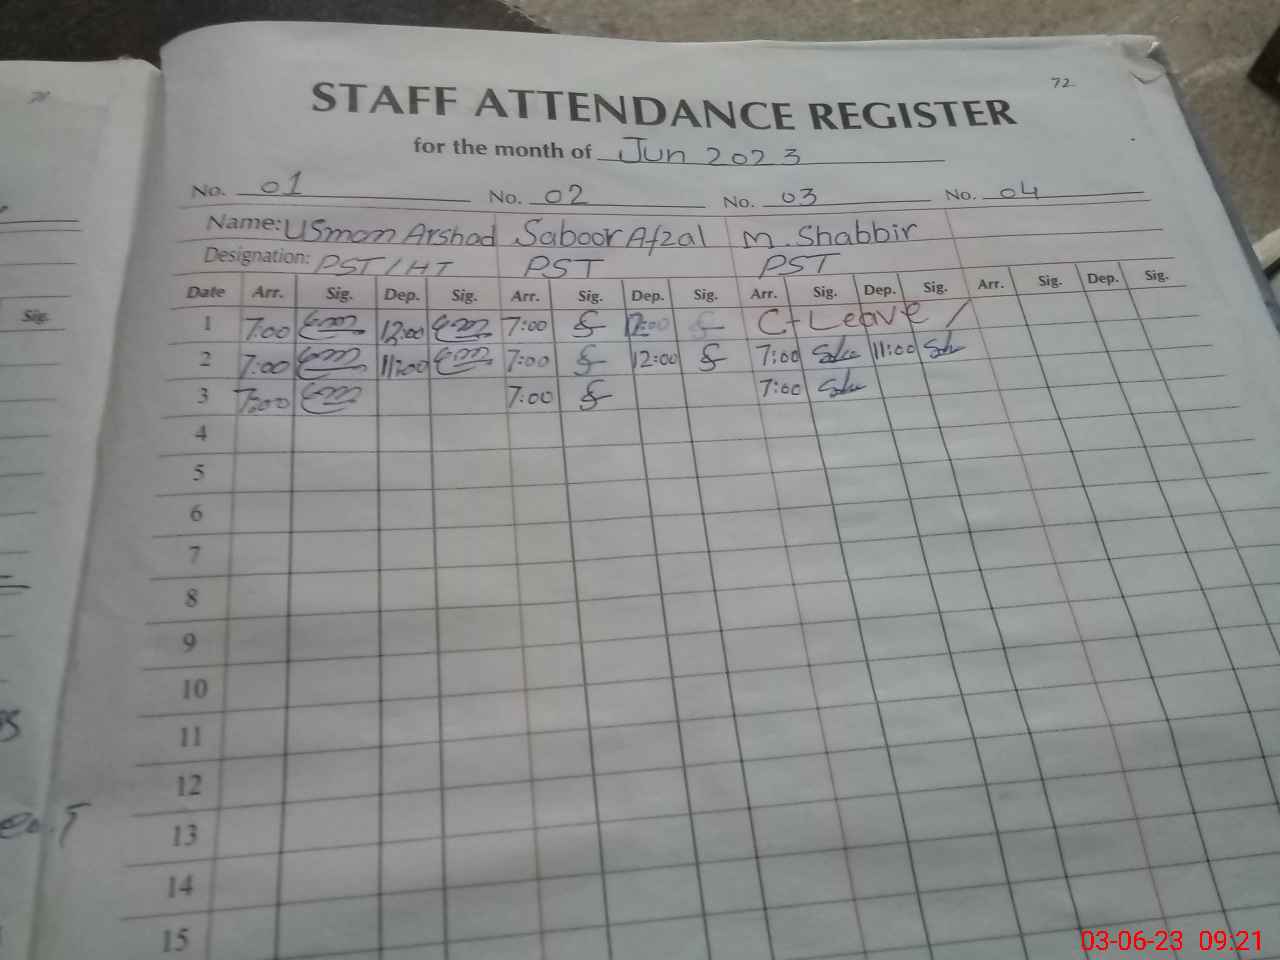 72
STAFF ATTENDANCE REGISTER
for the month of Jun 2023
No. 01 No. 02 No. 03 No. 04
Name: USman Arshad Saboor Afzal M. Shabbir
Designation: PST/HT PST PST
Date Arr. Sig. Dep. Sig. Arr. Sig. Dep. Sig. Arr. Sig. Dep. Sig. Arr. Sig. Dep. Sig.
1 7:00 12:00 7:00 12:00 C-Leave
2 7:00 11:00 7:00 12:00 7:00 11:00
3 7:00 7:00 7:00
4
5
6
7
8
9
10
11
12
13
14
15
Sig.
03-06-23 09:21